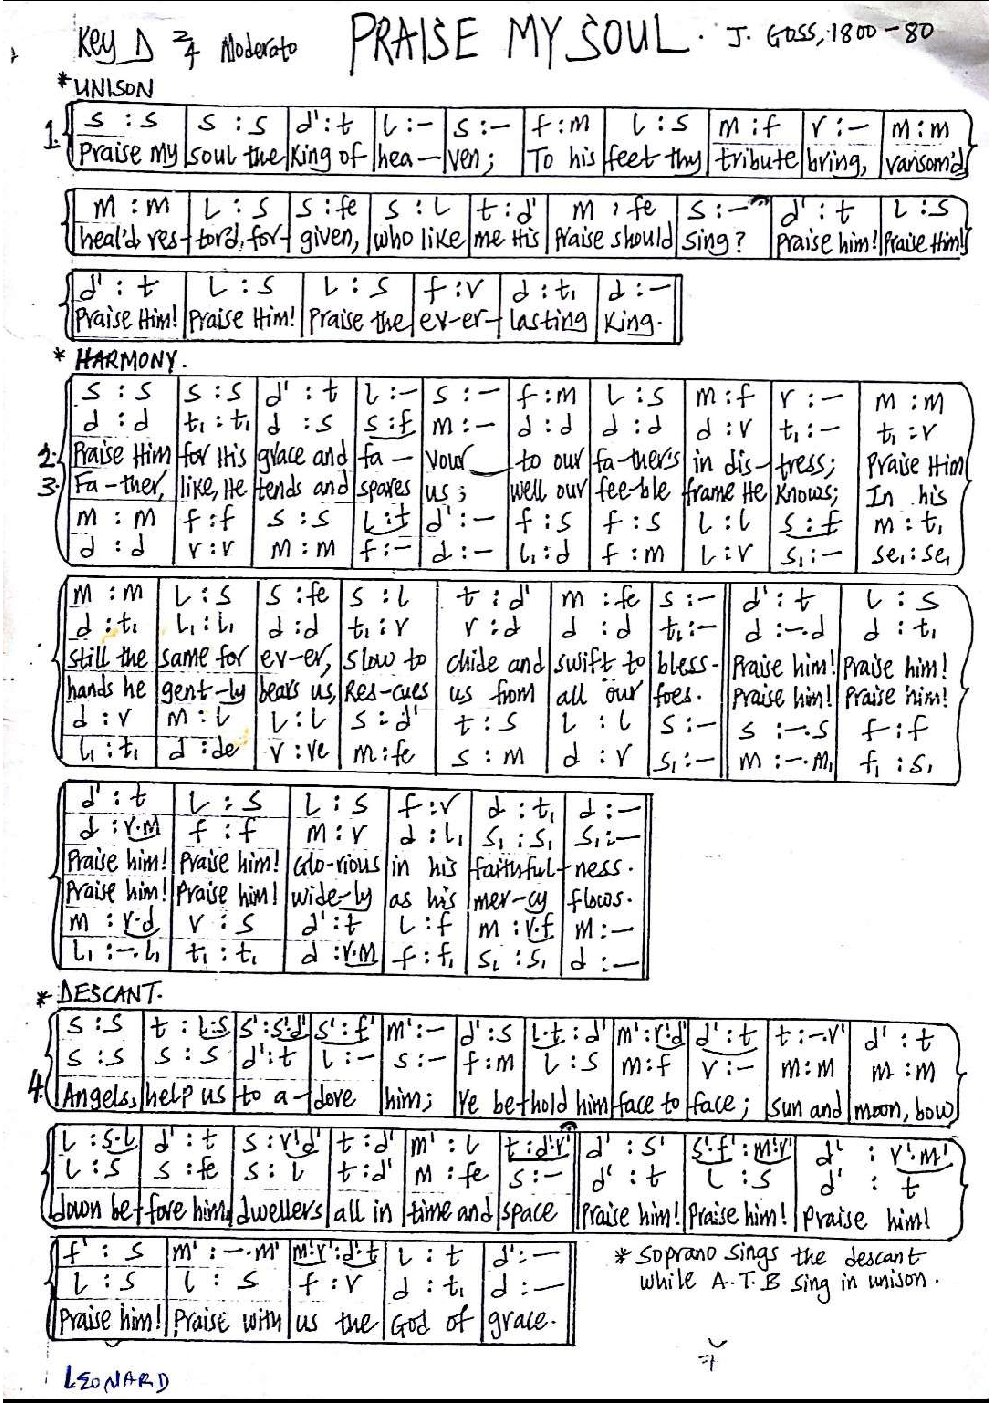 Key D 2/4 Moderato PRAISE MY SOUL. J. GOSS, 1800-80
*UNISON
1. s : s | s : s | d' : t | l : - | s : - | f : m | l : s | m : f | r : - | m : m
Praise my | soul the | King of | hea - | ven; | To his | feet thy | tribute | bring, | ransom'd
m : m | l : s | s : fe | s : l | t : d' | m : fe | s : - | d' : t | l : s
heal'd res- | tor'd, for- | given, | who like | me His | Praise should | sing? | Praise him! | Praise Him!
d' : t | l : s | l : s | f : r | d : t₁ | d : -
Praise Him! | Praise Him! | Praise the | ev-er- | lasting | King.
* HARMONY.
s : s | s : s | d' : t | l : - | s : - | f : m | l : s | m : f | r : - | m : m
d : d | t₁ : t₁ | d : s | s : f | m : - | d : d | d : d | d : r | t₁ : - | t₁ : r
2. Praise Him | for His | grace and | fa - | vour | to our | fa-ther's | in dis- | tress; | Praise Him
3. Fa-ther, | like, He | tends and | spares | us; | well our | fee-ble | frame He | knows; | In his
m : m | f : f | s : s | l : t | d' : - | f : s | f : s | l : l | s : f | m : t₁
d : d | r : r | m : m | f : - | d : - | l₁ : d | f : m | l : r | s₁ : - | se₁ : se₁
m : m | l : s | s : fe | s : l | t : d' | m : fe | s : - | d' : t | l : s
d : t₁ | l₁ : l₁ | d : d | t₁ : r | r : d | d : d | t₁ : - | d : -.d | d : t₁
still the | same for | ev-er, | slow to | chide and | swift to | bless. | Praise him! | Praise him!
hands he | gent-ly | bears us, | Res-cues | us from | all our | foes. | Praise him! | Praise him!
d : r | m : l | l : l | s : d' | t : s | l : l | s : - | s : -.s | f : f
l₁ : t₁ | d : de | r : re | m : fe | s : m | d : r | s₁ : - | m : -.m₁ | f₁ : s₁
d' : t | l : s | l : s | f : r | d : t₁ | d : -
d : r.m | f : f | m : r | d : l₁ | s₁ : s₁ | s₁ : -
Praise him! | Praise him! | Glo-rious | in his | faithful- | ness.
Praise him! | Praise him! | wide-ly | as his | mer-cy | flows.
m : r.d | r : s | d' : t | l : f | m : r.f | m : -
l₁ : -.l₁ | t₁ : t₁ | d : r.m | f : f₁ | s₁ : s₁ | d : -
* DESCANT.
s : s | t : l.s | s' : s'.d' | s' : f' | m' : - | d' : s | l.t : d' | m' : r'.d' | d' : t | t : -.r' | d' : t
s : s | s : s | d' : t | l : - | s : - | f : m | l : s | m : f | r : - | m : m | m : m
4. Angels, | help us | to a- | dore | him; | Ye be- | hold him | face to | face; | sun and | moon, bow
l : s.l | d' : t | s : r'.d' | t : d' | m' : l | t : d'.r' | d' : s' | s'.f' : m'.r' | d' : r'.m'
l : s | s : fe | s : l | t : d' | m : fe | s : - | d' : t | l : s | d' : t
down be- | fore him | dwellers | all in | time and | space | Praise him! | Praise him! | Praise him!
f' : s | m' : -.m' | m'.r' : d'.t | l : t | d' : -
l : s | l : s | f : r | d : t₁ | d : -
Praise him! | Praise with | us the | God of | grace.
* Soprano sings the descant
while A.T.B sing in unison.
LEONARD